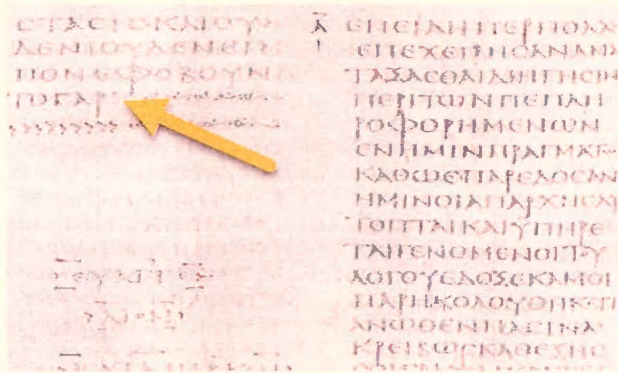 ϹΤΑϹΙϹΚΑΙΟΥ
ΔΕΝΙΟΥΔΕΝΕΙ
ΠΟΝΕΦΟΒΟΥΝ
ΤΟΓΑΡ
ΕΥΑΓΓΕ
ΛΙΟΝ
Α
Ι
ΕΠΕΙΔΗΠΕΡΠΟΛΛ
ΕΠΕΧΕΙΡΗϹΑΝΑΝΑ
ΤΑΞΑϹΘΑΙΔΙΗΓΗϹΙΝ
ΠΕΡΙΤΩΝΠΕΠΛΗ
ΡΟΦΟΡΗΜΕΝΩΝ
ΕΝΗΜΙΝΠΡΑΓΜΑΤ
ΚΑΘΩϹΠΑΡΕΔΟϹΑΝ
ΗΜΙΝΟΙΑΠΑΡΧΗϹΑΥ
ΤΟΠΤΑΙΚΑΙΥΠΗΡΕ
ΤΑΙΓΕΝΟΜΕΝΟΙΤΟΥ
ΛΟΓΟΥΕΔΟΞΕΚΑΜΟΙ
ΠΑΡΗΚΟΛΟΥΘΗΚΟΤΙ
ΑΝΩΘΕΝΠΑϹΙΝΑ
ΚΡΕΙΒΩϹΚΑΘΕΞΗϹ